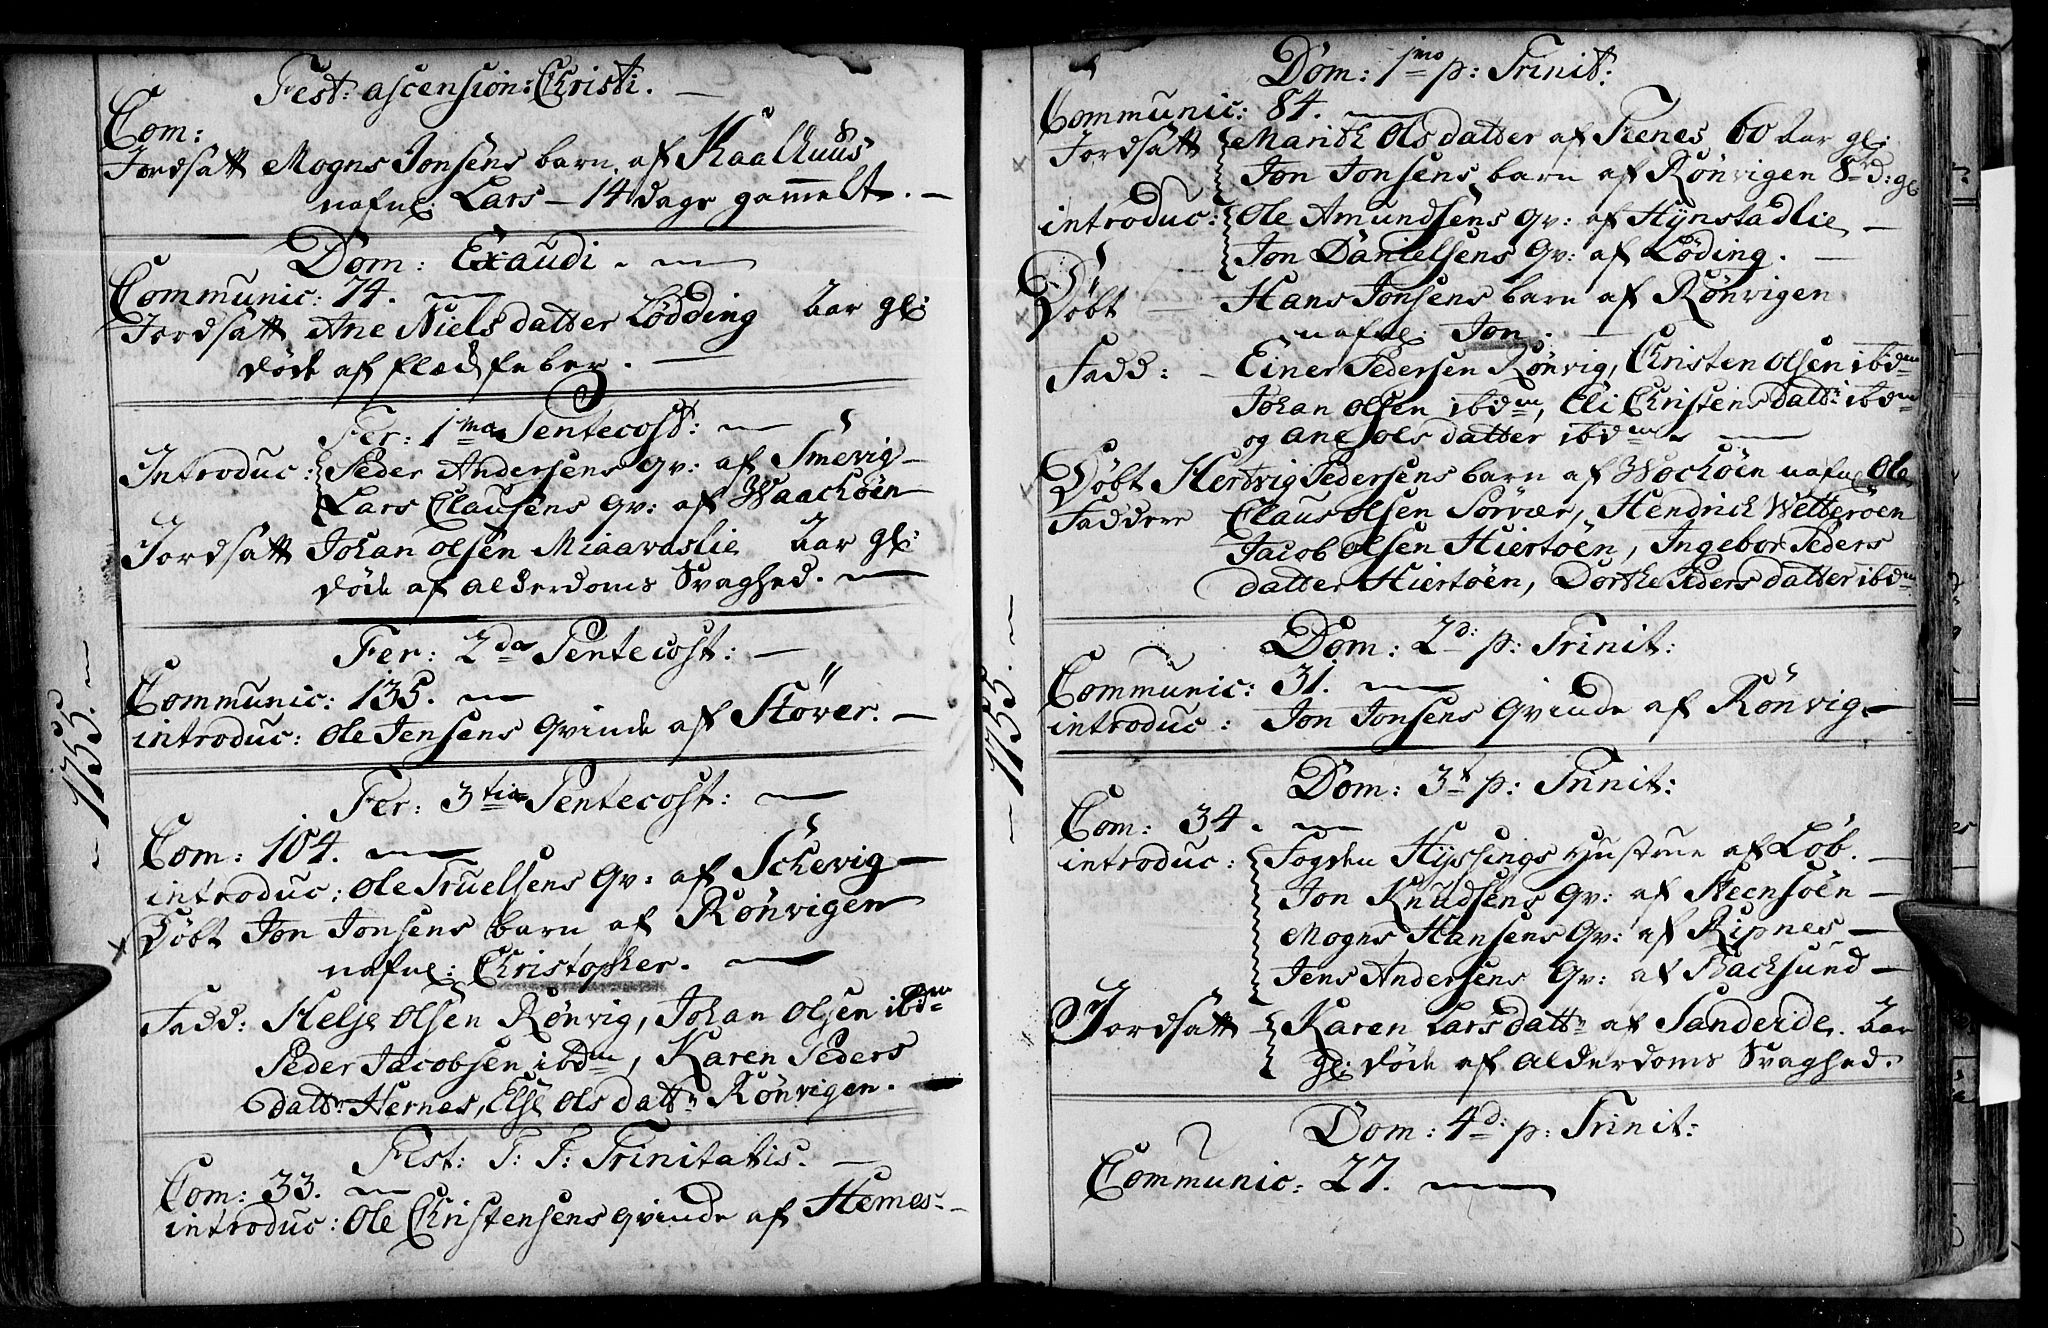 Fest: ascension: Christi. —
Com:
Jordsatt Mogns Jonsens barn af Kaalhuus
nafnl: Lars — 14 dage gammelt. —
Dom: Exaudi. —
Communic: 74. —
Jordsatt Ane Nielsdatter Lødding Aar gl:
døde af flædfeber. —
Fer: 1ma Pentecost: —
Introduc: Peder Andersens Qv: af Smevig —
Lars Clausens Qv: af Waachøen
Jordsatt Johan Olsen Miaavaslie Aar gl:
døde af Alderdoms Svaghed. —
Fer: 2da Pentecost: —
Communic: 135. —
introduc: Ole Jensens Qvinde af Støver. —
— 1755. —
Fer: 3tia Pentecost: —
Com: 104. —
introduc: Ole Truelsens Qv: af Schevig —
Døbt Jon Jonsens barn af Rønvigen
nafnl: Christopher. —
Fadd: Helje Olsen Rønvig, Johan Olsen ibdm
Peder Jacobsen ibdm, Karen Peders
dattr Hernes, Else Olsdattr Rønvigen. —
Fest: S: S: Trinitatis. —
Com: 33. —
introduc: Ole Christensens Qvinde af Hernes. —
Dom: 1mo p: Trinit:
Communic: 84. —
Jordsatt Marith Olsdatter af Tenes 60 Aar gl:
Jon Jonsens barn af Rønvigen 8 d: gl
introduc: Ole Amundsens Qv: af Hynstadlie —
Jon Danielsens Qv: af Løding. —
Døbt — Hans Jonsens barn af Rønvigen
nafnl: Jon. —
Fadd: — Einer Pedersen Rønvig, Christen Olsen ibdm
Johan Olsen ibdm, Eli Christensdattr ibdm
og Ane Olsdatter ibdm. —
Døbt Hertvig Pedersens barn af Wochøen nafnl Ole
Faddere Claus Olsen Sørvær, Hendrich Wetterøen
Jacob Olsen Hiertøen, Ingebor Peders
datter Hiertøen, Dorthe Pedersdatter ibdm
— 1755. —
Dom: 2d: p: Trinit:
Communic: 31. —
introduc: Jon Jonsens Qvinde af Rønvig. —
Dom: 3t p: Trinit:
Com: 34. —
introduc: Fogden Hyssings Hustrue af Løb. —
Jon Knudsens Qv: af Steensøen —
Mogns Hansens Qv: af Ripnes —
Jens Andersens Qv: af Backsund —
Jordsatt — Karen Larsdattr af Sandeide. Aar
gl: døde af Alderdoms Svaghed.
Dom: 4d: p: Trinit:
Communic: 27. —